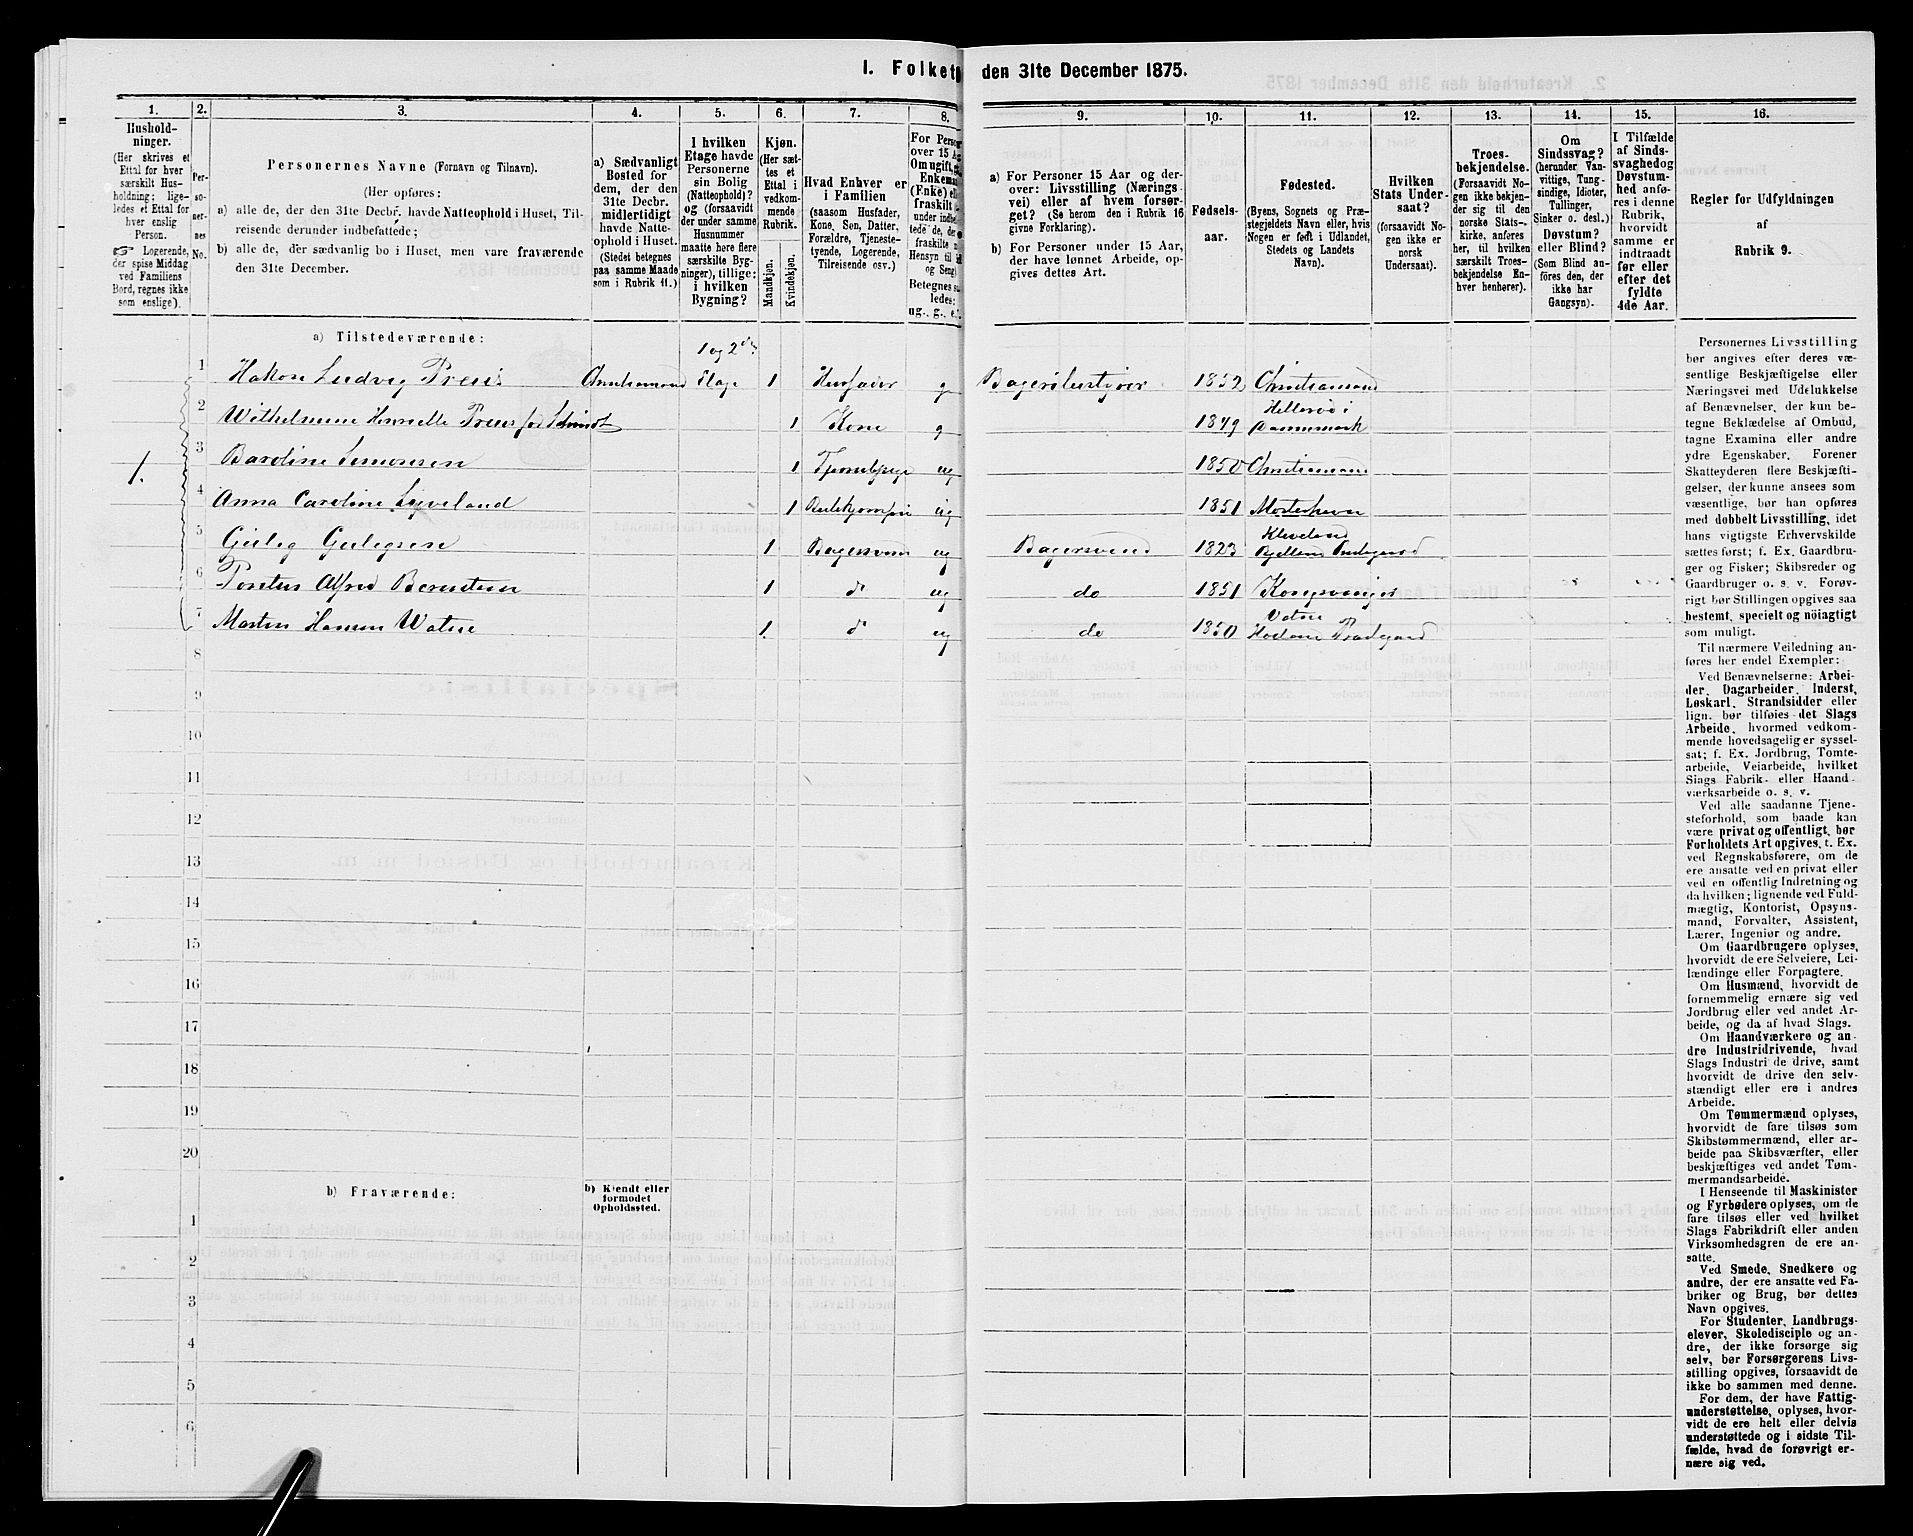 I. Folket den 31te December 1875.
1. 2. 3. 4. 5. 6. 7. 8. 9. 10. 11. 12. 13. 14. 15. 16.
Hushold-
ninger.
(Her skrives et
Ettal for hver
særskilt Hus-
holdning; lige-
ledes et Ettal for
hver enslig
Person.
☞ Logerende,
der spise Middag
ved Familiens
Bord, regnes ikke
som enslige).
Per-
so-
ner-
nes
No.
Personernes Navne (Fornavn og Tilnavn).
(Her opføres:
a) alle de, der den 31te Decbr. havde Natteophold i Huset, Til-
reisende derunder indbefattede;
b) alle de, der sædvanlig bo i Huset, men vare fraværende
den 31te December.
a) Sædvanligt
Bosted for
dem, der den
31te Decbr.
midlertidigt
havde Natte-
ophold i Huset.
(Stedet betegnes
paa samme Maade
som i Rubrik 11.)
I hvilken
Etage havde
Personerne
sin Bolig
(Natteophold)?
og (forsaavidt
der under samme
Husnummer
maatte høre flere
særskilte Byg-
ninger), tillige:
i hvilken
Bygning?
Kjøn.
(Her sæt-
tes et
Ettal i
vedkom-
mende
Rubrik.
Mandkjøn.
Kvindekjøn.
Hvad Enhver er
i Familien
(saasom Husfader,
Kone, Søn, Datter,
Forældre, Tjeneste-
tyende, Logerende,
Tilreisende osv.)
For Perso
over 15 A
Om ugift, g
Enkema
(Enke) el
fraskilt
under indbe
tede de, de
fraskilte
Hensyn til
og Seng
Betegnes
ledes:
ug., g., e.
a) For Personer 15 Aar og der-
over: Livsstilling (Nærings-
vei) eller af hvem forsør-
get? (Se herom den i Rubrik 16
givne Forklaring).
b) For Personer under 15 Aar,
der have lønnet Arbeide, op-
gives dettes Art.
Fødsels-
aar.
Fødested.
(Byens, Sognets og Præ-
stegjeldets Navn eller, hvis
Nogen er født i Udlandet,
Stedets og Landets
Navn).
Hvilken
Stats Under-
saat?
(forsaavidt No-
gen ikke er
norsk
Undersaat).
Troes-
bekjendelse.
(Forsaavidt No-
gen ikke bekjen-
der sig til den
norske Stats-
kirke, anføres
her, til hvilken
særskilt Troes-
bekjendelse En-
hver henhører).
Om
Sindssvag?
(herunder Van-
vittige, Tung-
sindige, Idioter,
Tullinger,
Sinker o. desl.)
Døvstum?
eller Blind?
(Som Blind an-
føres den, der
ikke har
Gangsyn).
I Tilfælde
af Sinds-
svaghed og
Døvstum-
hed anfø-
res i denne
Rubrik,
hvorvidt
samme er
indtraadt
før eller
efter det
fyldte
4de Aar.
Regler for Udfyldningen
af
Rubrik 9.
a) Tilstedeværende:
1 og 2
1 Hakon Ludvig Preus Christiansand Etage 1 Husfader g 1852 Christiansand
2 Wilhelmine Preus 1 Kone g 1849 Dannemark
1. 3 Simonsen 1 ug 1850 Christiansand
4 Anna Caroline 1 ug 1851
5 1 Bagersvend ug Bagersvend 1823
6 Pontus Alfred 1 do ug do 1851 Kongsvinger
7 Hansen Watne 1 do ug do 1850 Vatne
8
9
10
11
12
13
14
15
16
17
18
19
20
b) Fraværende:
b) Kjendt eller
formodet
Opholdssted.
1
2
3
4
5
6
Personernes Livsstilling
bør angives efter deres væ-
sentlige Beskjæftigelse eller
Næringsvei med Udelukkelse
af Benævnelser, der kun be-
tegne Beklædelse af Ombud,
tagne Examina eller andre
ydre Egenskaber. Forener
Skatteyderen flere Beskjæfti-
gelser, der kunne ansees som
væsentlige, bør han opføres
med dobbelt Livsstilling, idet
hans vigtigste Erhvervskilde
sættes først; f. Ex. Gaardbru-
ger og Fisker; Skibsreder og
Gaardbruger o. s. v. Forøv-
rigt bør Stillingen opgives saa
bestemt, specielt og nöiagtigt
som muligt.
Til nærmere Veiledning an-
føres her endel Exempler:
Ved Benævnelserne: Arbei-
der, Dagarbeider, Inderst,
Løskarl, Strandsidder eller
lign. bør tilføies det Slags
Arbeide, hvormed vedkom-
mende hovedsagelig er syssel-
sat; f. Ex. Jordbrug, Tomte-
arbeide, Veiarbeide, hvilket
Slags Fabrik- eller Haand-
værksarbeide o. s. v.
Ved alle saadanne Tjene-
steforhold, som baade kan
være privat og offentligt, bør
Forholdets Art opgives, t. Ex.
ved Regnskabsførere, om de
ere ansatte ved en privat eller
ved en offentlig Indretning og
da hvilken; lignende ved Fuld-
mægtig, Kontorist, Opsyns-
mand, Forvalter, Assistent,
Lærer, Ingeniør og andre.
Om Gaardbrugere oplyses,
hvorvidt de ere Selveiere, Lei-
lændinge eller Forpagtere.
Om Husmænd, hvorvidt de
fornemmelig ernære sig ved
Jordbrug eller ved andet Ar-
beide, og da af hvad Slags.
Om Haandværkere og an-
dre Industridrivende, hvad
Slags Industri de drive, samt
hvorvidt de drive den selv-
stændigt eller ere i andres
Arbeide.
Om Tømmermænd oplyses,
hvorvidt de fare tilsøs som
Skibstømmermænd, eller ar-
beide paa Skibsværfter, eller
beskjæftiges ved andet Tøm-
mermandsarbeide.
I Henseende til Maskinister
og Fyrbødere oplyses, om de
fare tilsøs eller ved hvilket
Slags Fabrikdrift eller anden
Virksomhedsgren de ere an-
satte.
Ved Smede, Snedkere og
andre, der ere ansatte ved Fa-
briker og Brug, bør dettes
Navn opgives.
For Studenter, Landbrugs-
elever, Skoledisciple og an-
dre, der ikke forsørge sig
selv, bør Forsørgerens Livs-
stilling opgives, forsaavidt de
ikke bo sammen med denne.
For dem, der have Fattig-
understøttelse, oplyses, hvor-
vidt de ere helt eller delvis
understøttede og i sidste Til-
fælde, hvad de forøvrigt er-
nære sig ved.